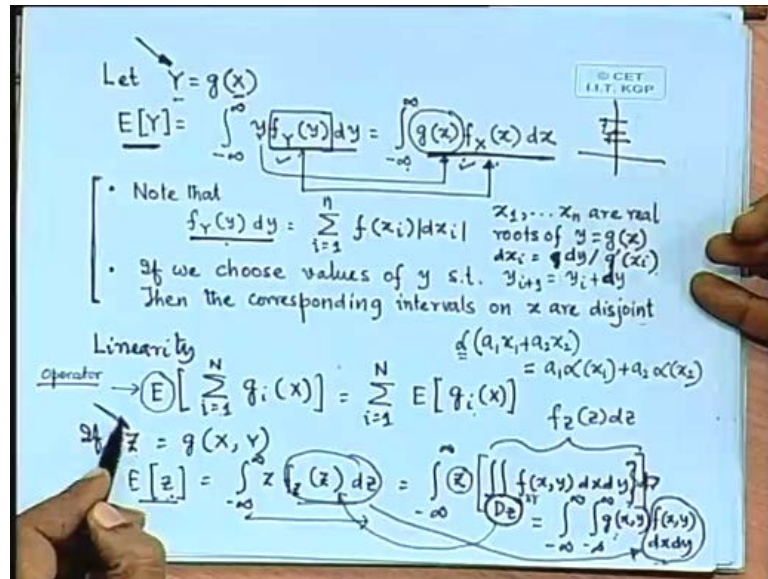 Let Y = g(X)
© CET
I.I.T. KGP
E[Y] = ∫_{-∞}^{∞} y f_Y(y) dy = ∫_{-∞}^{∞} g(x) f_X(x) dx
• Note that
f_Y(y) dy = Σ_{i=1}^{n} f(x_i)|dx_i|
x_1, ... x_n are real
roots of y = g(x)
dx_i = dy/g'(x_i)
• If we choose values of y s.t. y_{i+1} = y_i + dy
Then the corresponding intervals on x are disjoint
Linearity
α(a_1x_1+a_2x_2)
= a_1α(x_1)+a_2α(x_2)
Operator → E[Σ_{i=1}^{N} g_i(X)] = Σ_{i=1}^{N} E[g_i(X)]
f_Z(z)dz
If Z = g(X,Y)
E[Z] = ∫_{-∞}^{∞} z f_Z(z) dz = ∫_{-∞}^{∞} z [∬ f(x,y) dxdy]
D_z
= ∫_{-∞}^{∞} ∫_{-∞}^{∞} g(x,y) f(x,y)
dxdy